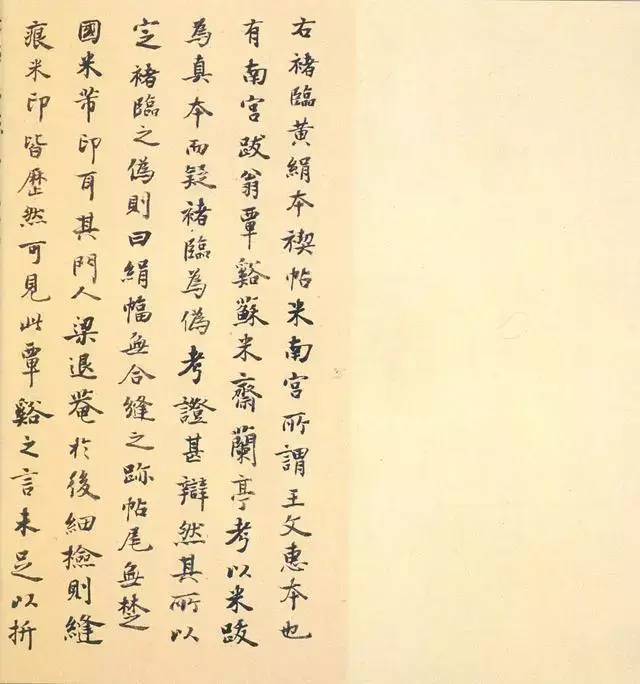 右褚臨黃絹本禊帖米南宮所謂王文惠本也
有南宮跋翁覃谿蘇米齋蘭亭考以米跋
為真本而疑褚臨為偽考證甚辯然其所以
定褚臨之偽則曰絹幅無合縫之跡帖尾無楚
國米芾印耳其門人梁退菴於後細撿則縫
痕米印皆歷然可見此覃谿之言未足以折